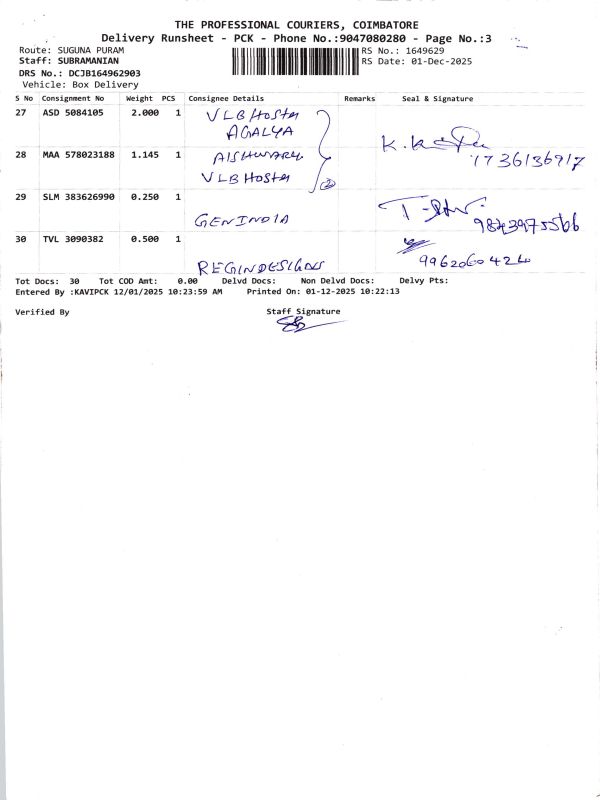 THE PROFESSIONAL COURIERS, COIMBATORE
Delivery Runsheet - PCK - Phone No.:9047080280 - Page No.:3
Route: SUGUNA PURAM
RS No.: 1649629
Staff: SUBRAMANIAN
RS Date: 01-Dec-2025
DRS No.: DCJB164962903
Vehicle: Box Delivery
S No Consignment No Weight PCS Consignee Details Remarks Seal & Signature
27 ASD 5084105 2.000 1 VLB HOSTEL
AGALYA
28 MAA 578023188 1.145 1 AISHWARYA
VLB HOSTEL
29 SLM 383626990 0.250 1
GENINDIA
30 TVL 3090382 0.500 1
9962060424
REGINDESIGNS
Tot Docs: 30 Tot COD Amt: 0.00 Delvd Docs: Non Delvd Docs: Delvy Pts:
Entered By :KAVIPCK 12/01/2025 10:23:59 AM Printed On: 01-12-2025 10:22:13
Verified By Staff Signature